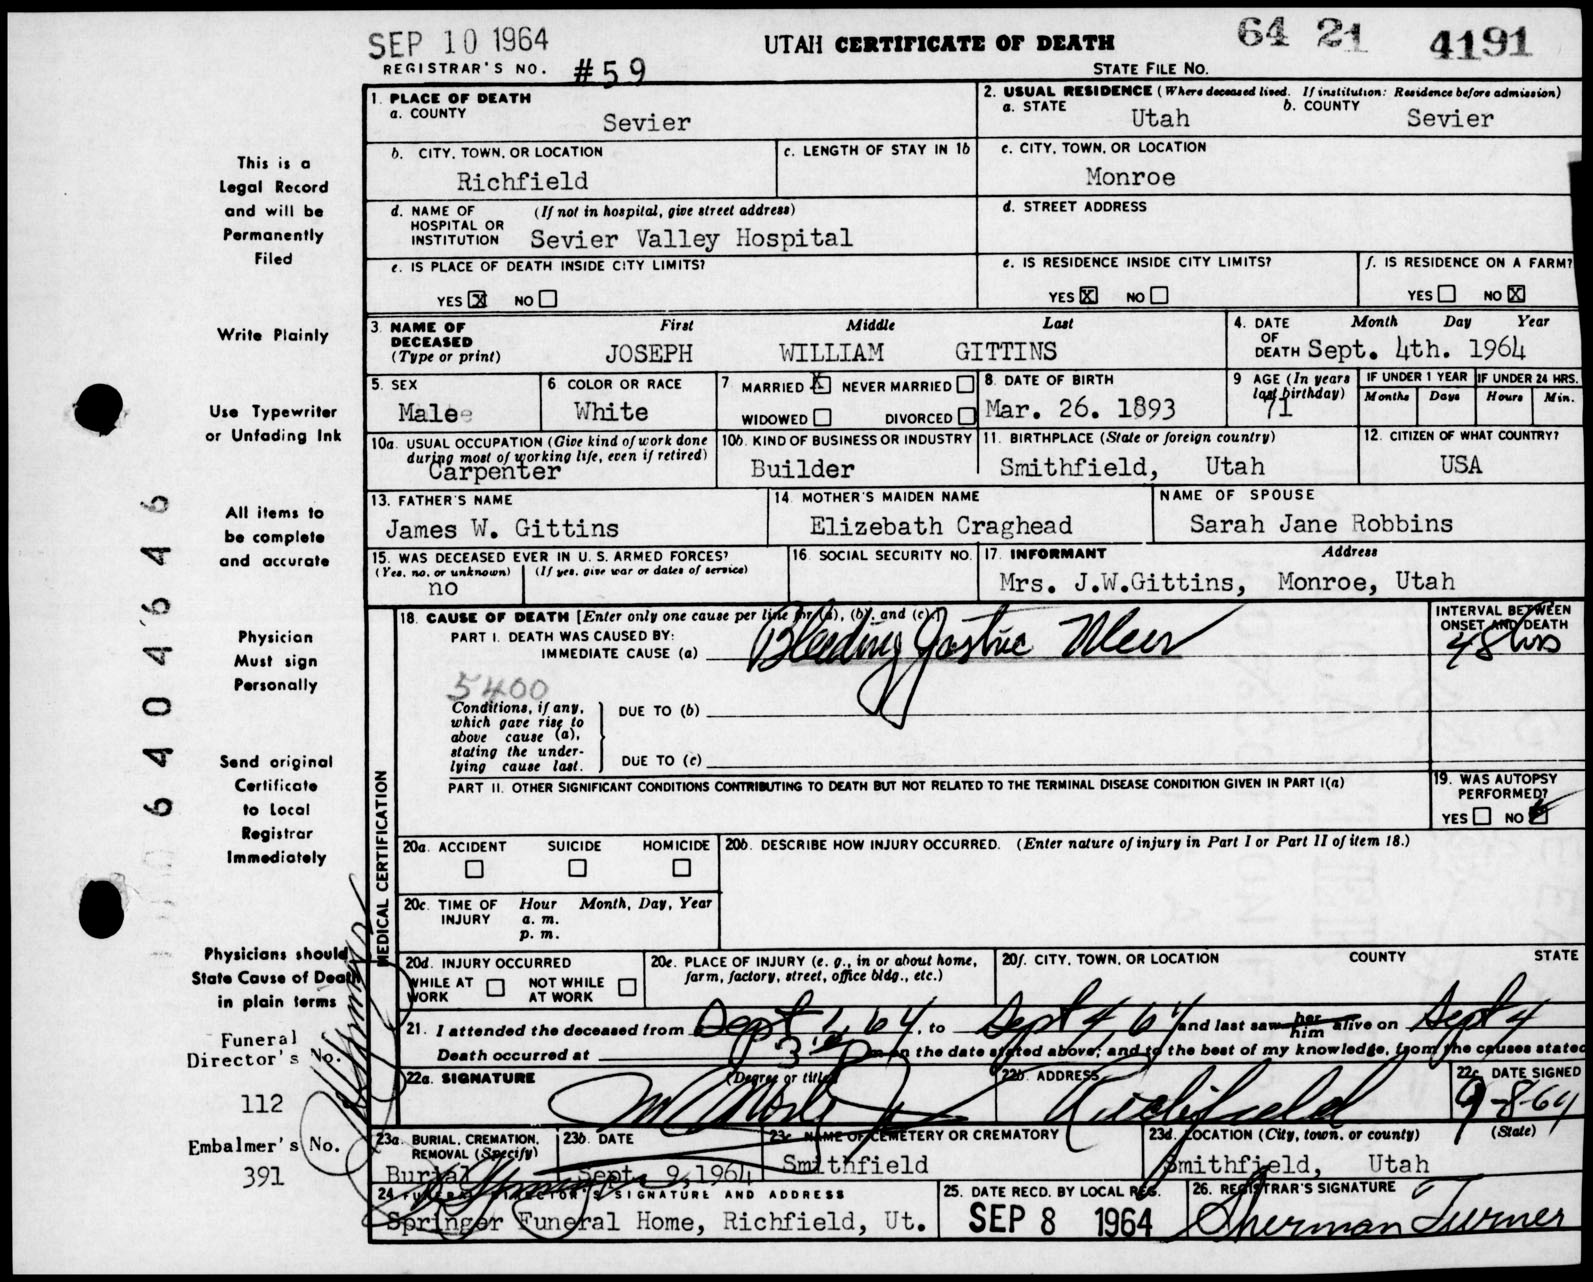 SEP 10 1964
UTAH CERTIFICATE OF DEATH
64 21 4191
REGISTRAR'S NO. #59
STATE FILE NO.
This is a
Legal Record
and will be
Permanently
Filed
Write Plainly
Use Typewriter
or Unfading Ink
All items to
be complete
and accurate
Physician
Must sign
Personally
Send original
Certificate
to Local
Registrar
Immediately
Physicians should
State Cause of Death
in plain terms
Funeral
Director's No.
112
Embalmer's No.
391
64 04646
1. PLACE OF DEATH
a. COUNTY
Sevier
2. USUAL RESIDENCE (Where deceased lived. If institution: Residence before admission)
a. STATE Utah b. COUNTY Sevier
b. CITY, TOWN, OR LOCATION
Richfield
c. LENGTH OF STAY IN 1b
c. CITY, TOWN, OR LOCATION
Monroe
d. NAME OF HOSPITAL OR INSTITUTION (If not in hospital, give street address)
Sevier Valley Hospital
d. STREET ADDRESS
e. IS PLACE OF DEATH INSIDE CITY LIMITS?
YES X NO
e. IS RESIDENCE INSIDE CITY LIMITS?
YES X NO
f. IS RESIDENCE ON A FARM?
YES NO X
3. NAME OF DECEASED (Type or print)
First Middle Last
JOSEPH WILLIAM GITTINS
4. DATE OF DEATH Month Day Year
Sept. 4th. 1964
5. SEX
Male
6 COLOR OR RACE
White
7 MARRIED X NEVER MARRIED
WIDOWED DIVORCED
8. DATE OF BIRTH
Mar. 26. 1893
9 AGE (In years last birthday)
71
IF UNDER 1 YEAR
Months Days
IF UNDER 24 HRS.
Hours Min.
10a. USUAL OCCUPATION (Give kind of work done during most of working life, even if retired)
Carpenter
10b. KIND OF BUSINESS OR INDUSTRY
Builder
11. BIRTHPLACE (State or foreign country)
Smithfield, Utah
12. CITIZEN OF WHAT COUNTRY?
USA
13. FATHER'S NAME
James W. Gittins
14. MOTHER'S MAIDEN NAME
Elizebath Craghead
NAME OF SPOUSE
Sarah Jane Robbins
15. WAS DECEASED EVER IN U. S. ARMED FORCES?
(Yes, no, or unknown) (If yes, give war or dates of service)
no
16. SOCIAL SECURITY NO.
17. INFORMANT Address
Mrs. J.W.Gittins, Monroe, Utah
MEDICAL CERTIFICATION
18. CAUSE OF DEATH [Enter only one cause per line for (a), (b), and (c).]
PART I. DEATH WAS CAUSED BY:
IMMEDIATE CAUSE (a) Bleeding Gastric Ulcer
INTERVAL BETWEEN ONSET AND DEATH
48 hrs
5400
Conditions, if any, which gave rise to above cause (a), stating the underlying cause last.
DUE TO (b)
DUE TO (c)
PART II. OTHER SIGNIFICANT CONDITIONS CONTRIBUTING TO DEATH BUT NOT RELATED TO THE TERMINAL DISEASE CONDITION GIVEN IN PART I(a)
19. WAS AUTOPSY PERFORMED?
YES NO
20a. ACCIDENT SUICIDE HOMICIDE
20b. DESCRIBE HOW INJURY OCCURRED. (Enter nature of injury in Part I or Part II of item 18.)
20c. TIME OF INJURY Hour Month, Day, Year
a. m.
p. m.
20d. INJURY OCCURRED
WHILE AT WORK NOT WHILE AT WORK
20e. PLACE OF INJURY (e. g., in or about home, farm, factory, street, office bldg., etc.)
20f. CITY, TOWN, OR LOCATION COUNTY STATE
21. I attended the deceased from Sept 2, 64, to Sept 4, 64 and last saw her him alive on Sept 4
Death occurred at m on the date stated above; and to the best of my knowledge, from the causes stated
22a. SIGNATURE (Degree or title)
22b. ADDRESS
Richfield
22c. DATE SIGNED
9-8-64
23a. BURIAL, CREMATION, REMOVAL (Specify)
Burial
23b. DATE
Sept. 9, 1964
23c. NAME OF CEMETERY OR CREMATORY
Smithfield
23d. LOCATION (City, town, or county) (State)
Smithfield, Utah
24 FUNERAL DIRECTOR'S SIGNATURE AND ADDRESS
Springer Funeral Home, Richfield, Ut.
25. DATE RECD. BY LOCAL REG.
SEP 8 1964
26. REGISTRAR'S SIGNATURE
Sherman Turner